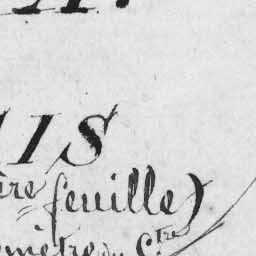 IS
ère feuille)
mètre du Ctre